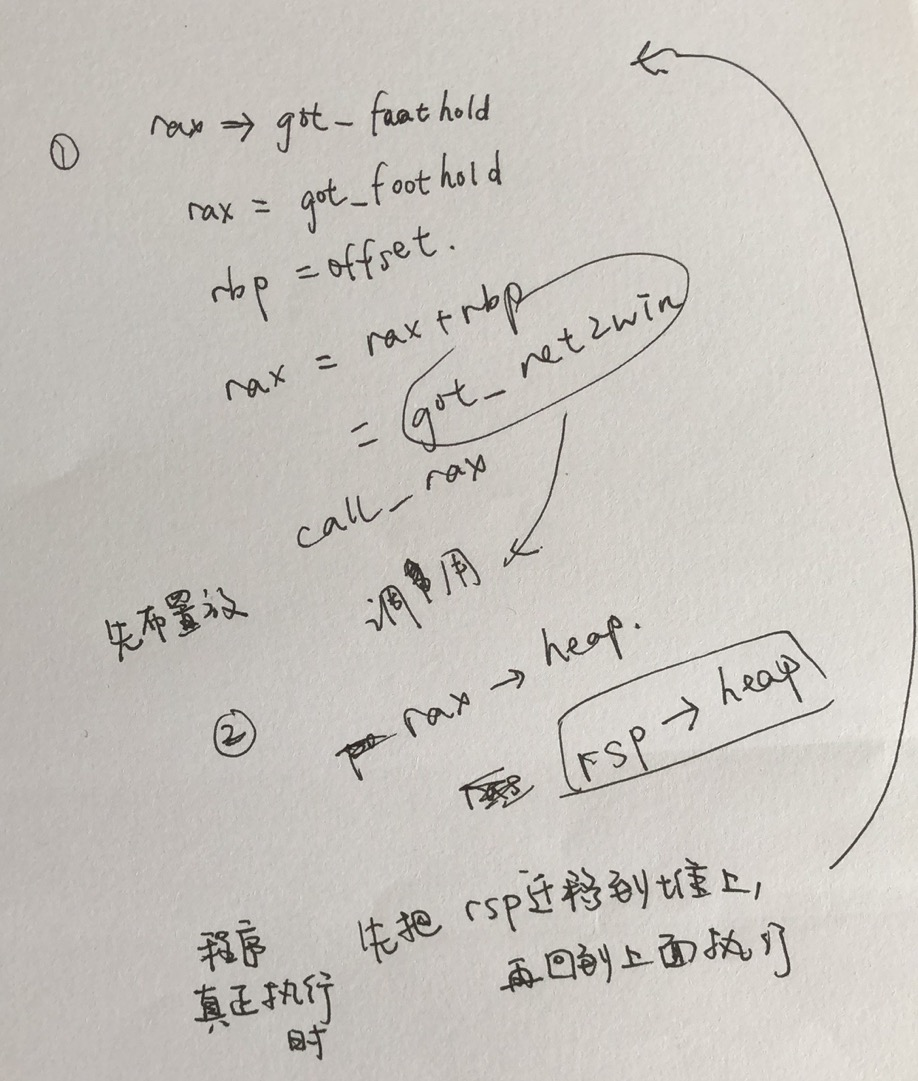 ① rax ⇒ got_foothold
rax = got_foothold
rbp = offset.
rax = rax + rbp
= got_ret2win
call_rax
先布置放 调用
② rax → heap.
rsp → heap
程序 先把 rsp迁移到堆上,
真正执行 再回到上面执行
时